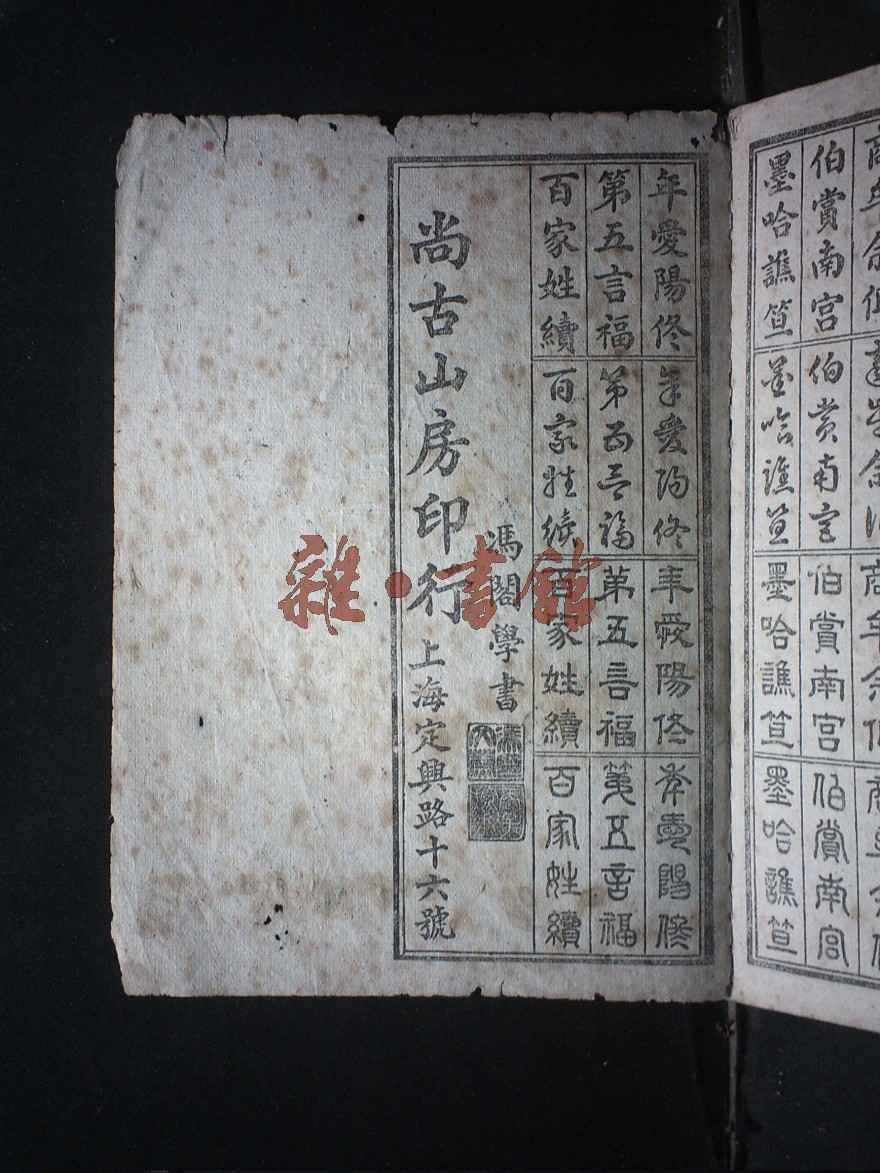 墨哈譙笪
伯賞南宮
墨哈譙笪
伯賞南宮
墨哈譙笪
伯賞南宮
墨哈譙笪
伯賞南宮
年愛陽佟
第五言福
百家姓續
年愛陽佟
第五言福
百家姓續
年愛陽佟
第五言福
百家姓續
年愛陽佟
第五言福
百家姓續
馮閣學書
尚古山房印行
上海定興路十六號
雜·書館